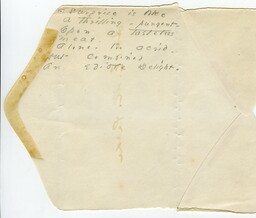 Surprise is like
A Thrilling - pungent -
Upon a Tasteless
meat
Alone - Too acrid -
but Combined
An edible Delight -